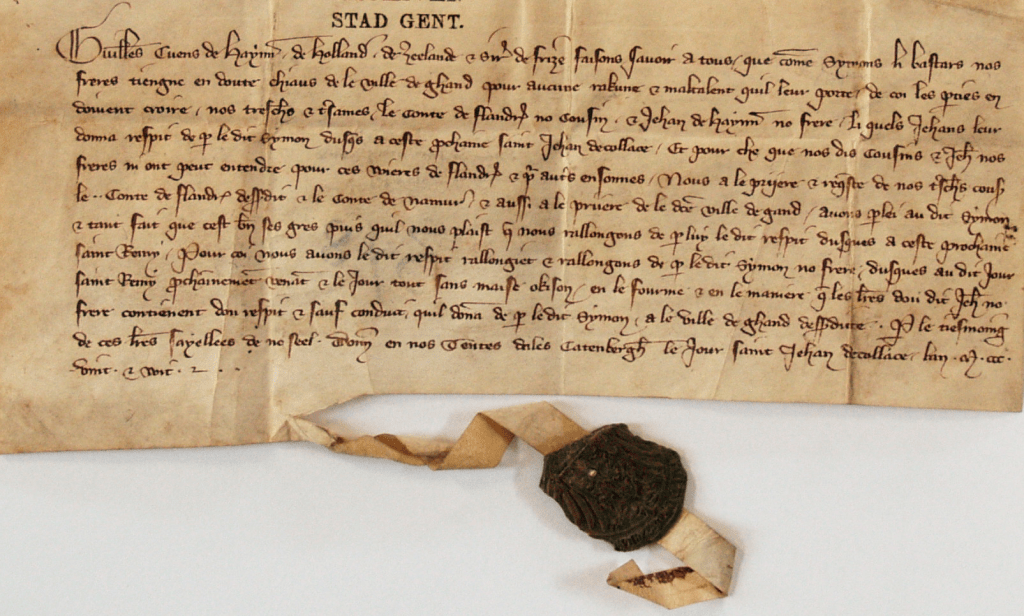 STAD GENT.
Guill̃es Cuens de Haynn̄ . de Holland̄ . de Zeelande & Sir̃ de Frize faisons savoir a tous / que com̄e Symons li bastars nos
freres tiengne en doute chiaus de le ville de Ghand pour aucune rakune & maltalent quil leur porte / de coi les pties en
doivent croire / nos treschrs & tsames / le Conte de Flandr̃ no Cousin . & Jehan de Haynn̄ no frere / li quels Jehans leur
donna respit de p le dit Symon dusqs a ceste pchaine saint Jehan decollace / Et pour che que nos dis Cousins & Jeh̄ nos
freres ni ont peut entendre pour ces wieres de Flandr̃ & pr autrs ensonnes / Nous a le priiere & reqste de nos tschrs cous̄
le .. Conte de Flandr̃ dessdit & le Conte de Namur / & aussi a le priiere de le dce ville de Gand / avons plei au dit Symon
& tant fait que cest bn̄ ses gres puis quil nous plaist q nous rallongons de p luy le dit respit dusques a ceste prochaine
saint Remy / Pour coi nous avons le dit respit rallongiet & rallongons de p le dit Symon no frere / dusques au dit jour
saint Remy pchainemēt venāt & le jour tout sans malse okison / en le fourme & en le maniere q les ltres dou dit Jeh̄ no
frere contienent dou respit & sauf conduit / quil dōna de p le dit Symon / a le ville de Ghand dessditte . P le tiesmoing
de ces ltres sayellees de no seel . Donn̄ en nos Tentes dales Catenbergh̄ le jour saint Jehan decollace / lan . M . ccc .
vint . & wit .